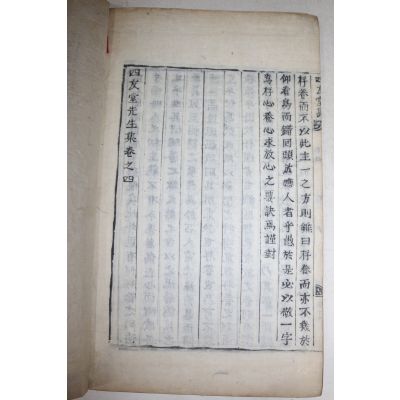 四友堂集
存養而不以此主一之方則雖曰存養而亦不幾於
仰看鳥而錯回頭應人者乎愚於是必以敬一字
爲存心養心求放心之要訣焉謹對
四友堂先生集卷之四